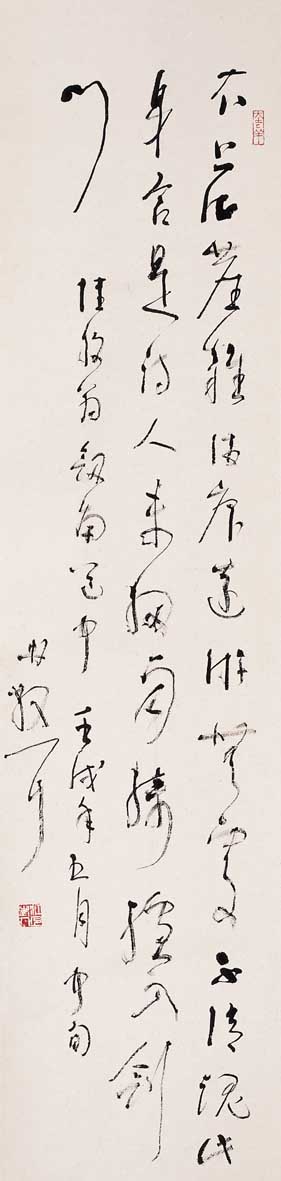 衣上征塵雜酒痕遠游無處不消魂此
身合是詩人未細雨騎驢入劍
門
陸放翁劍南道中 壬戌年五月中旬
林散耳
大吉羊